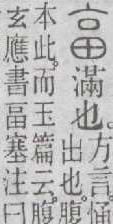 畐滿也。方言悀
出也。腹
本此。而玉篇云。腹
玄應書畐塞注曰